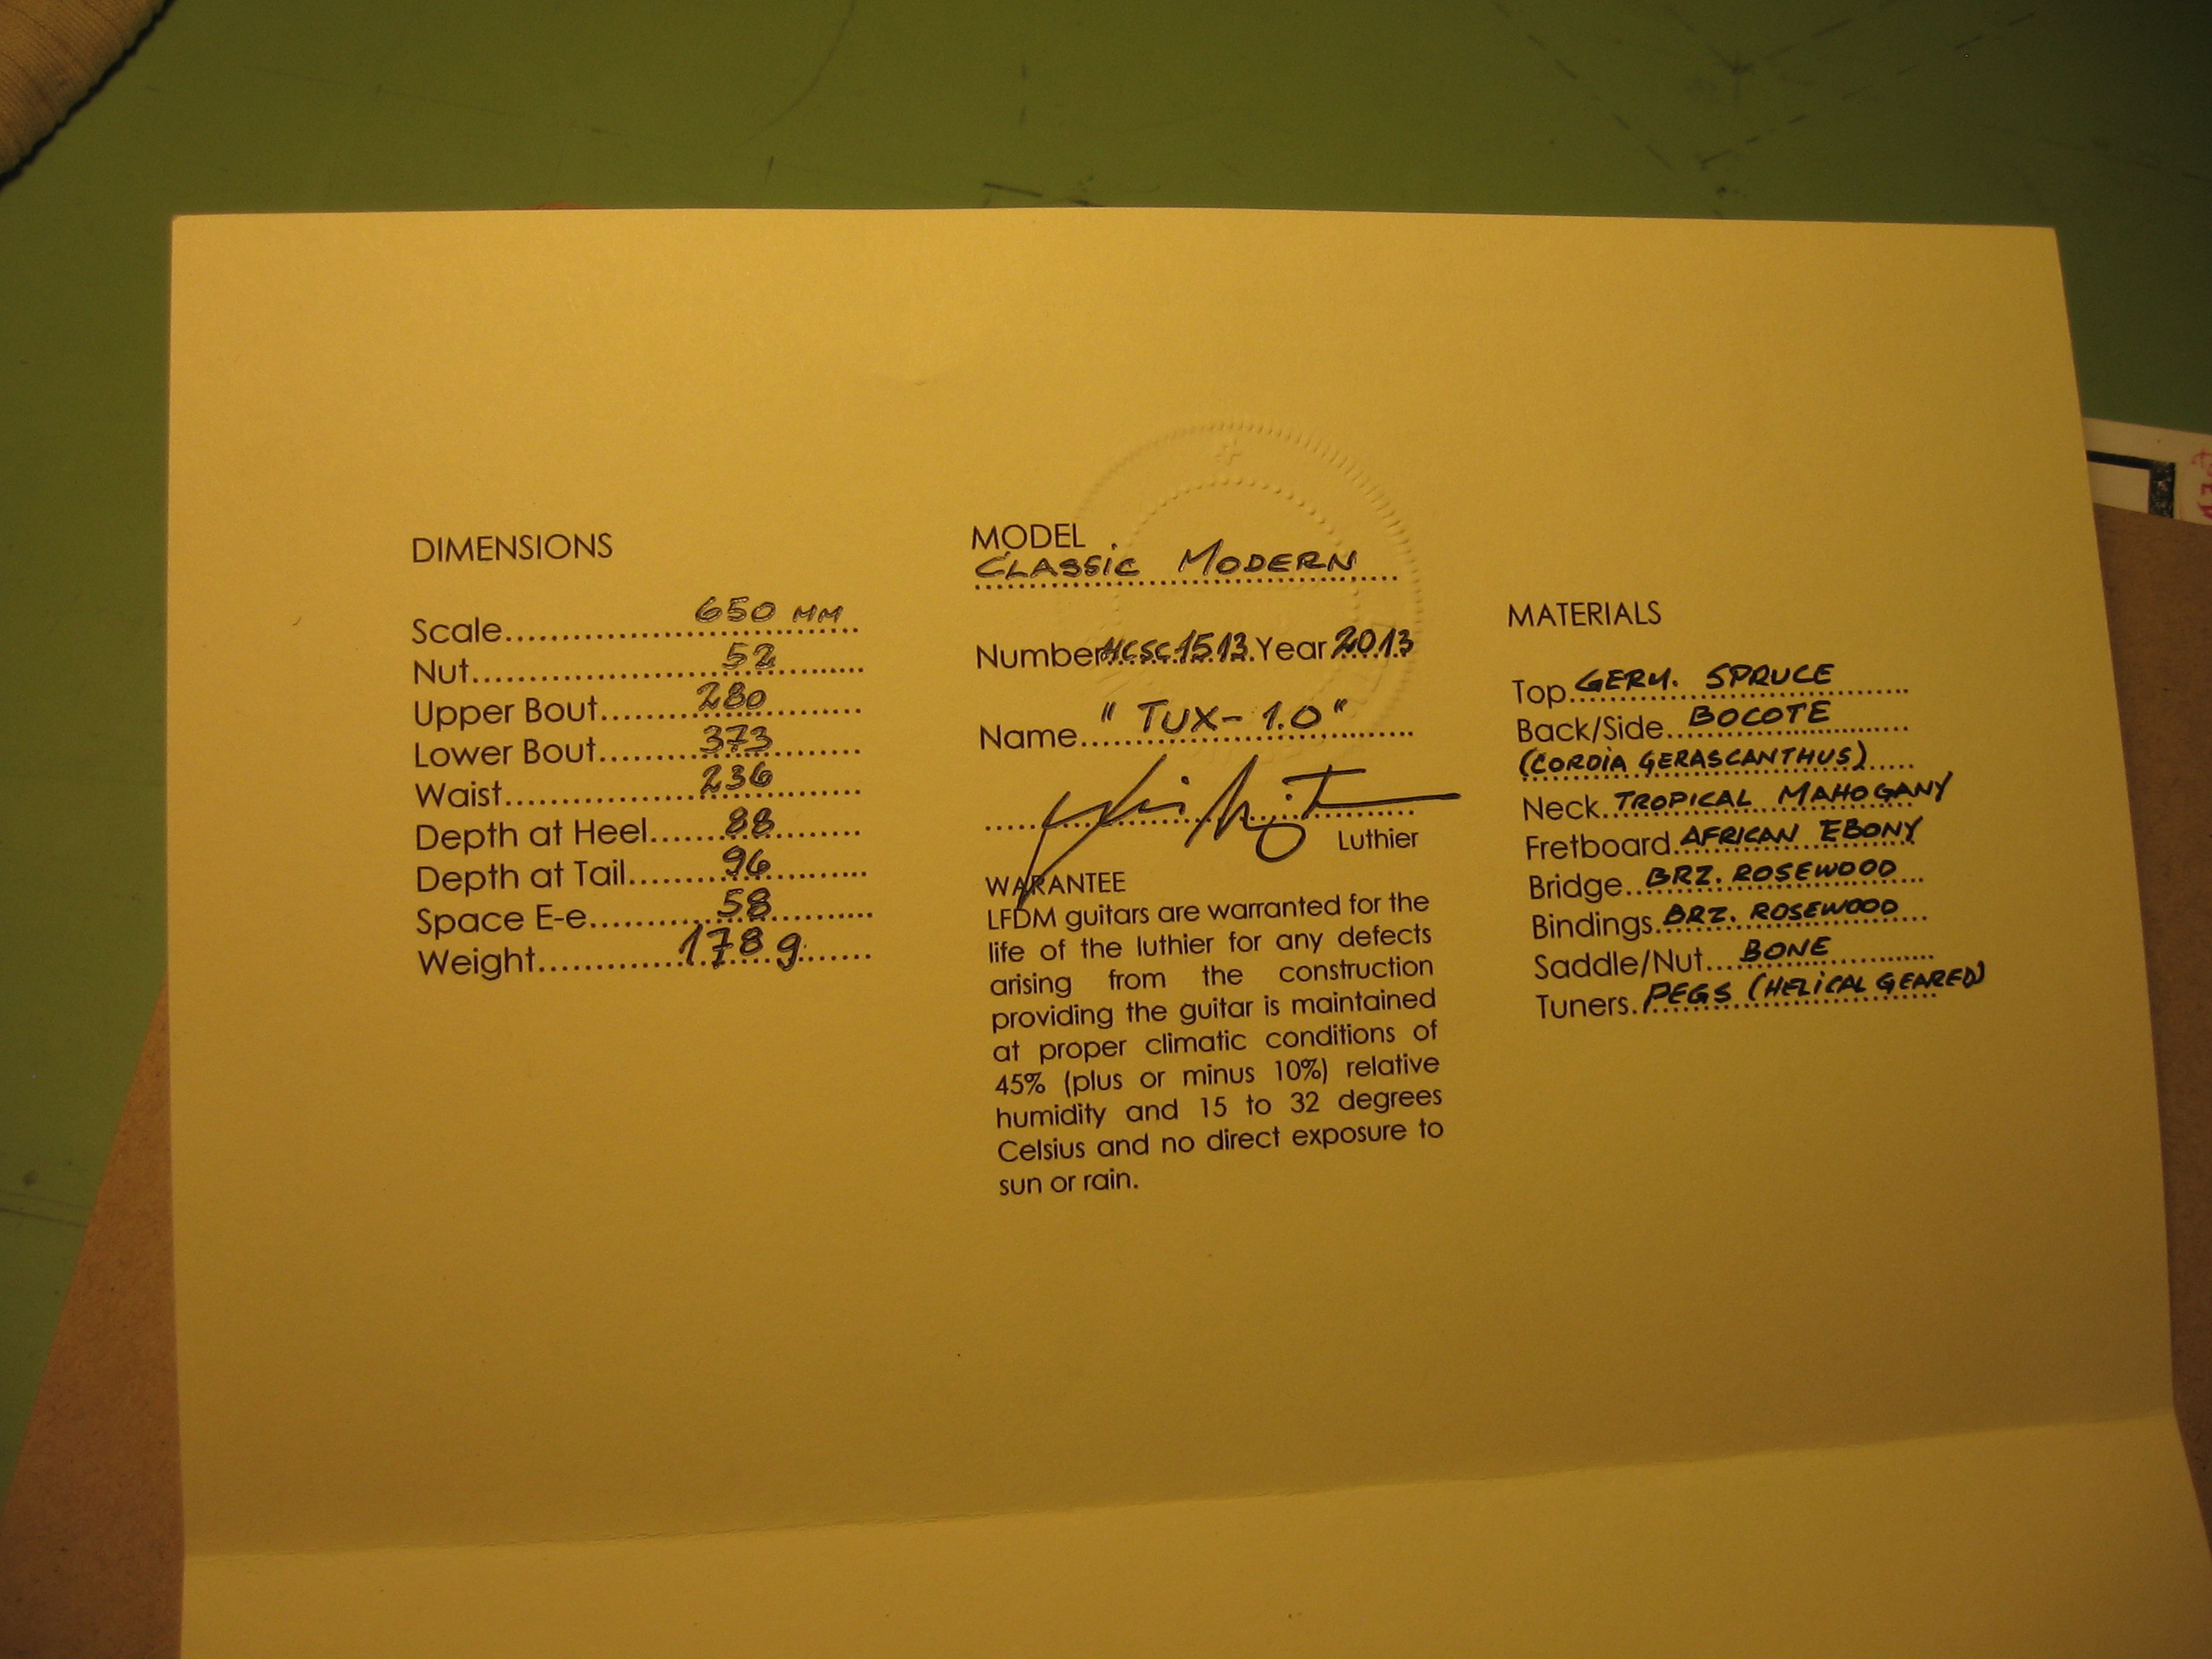 DIMENSIONS
Scale........................................650 MM
Nut........................................52
Upper Bout........................................280
Lower Bout........................................373
Waist........................................236
Depth at Heel........................................88
Depth at Tail........................................96
Space E-e........................................58
Weight........................................178 g
MODEL
CLASSIC MODERN
Number HCSC1513 Year 2013
Name "TUX-1.0"
Luthier
WARANTEE
LFDM guitars are warranted for the
life of the luthier for any defects
arising from the construction
providing the guitar is maintained
at proper climatic conditions of
45% (plus or minus 10%) relative
humidity and 15 to 32 degrees
Celsius and no direct exposure to
sun or rain.
MATERIALS
Top GERM. SPRUCE
Back/Side BOCOTE
(CORDIA GERASCANTHUS)
Neck TROPICAL MAHOGANY
Fretboard AFRICAN EBONY
Bridge BRZ. ROSEWOOD
Bindings BRZ. ROSEWOOD
Saddle/Nut BONE
Tuners PEGS (HELICAL GEARED)